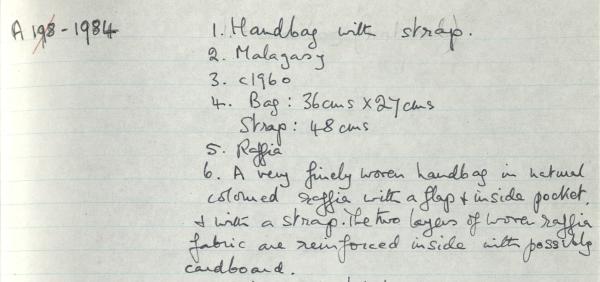 A 198-1984
1. Handbag with strap.
2. Malagasy
3. c1960
4. Bag: 36cms x 27cms
Strap: 48 cms
5. Raffia
6. A very finely woven handbag in natural
coloured raffia with a flap & inside pocket,
& with a strap. The two layers of woven raffia
fabric are reinforced inside with possibly
cardboard.